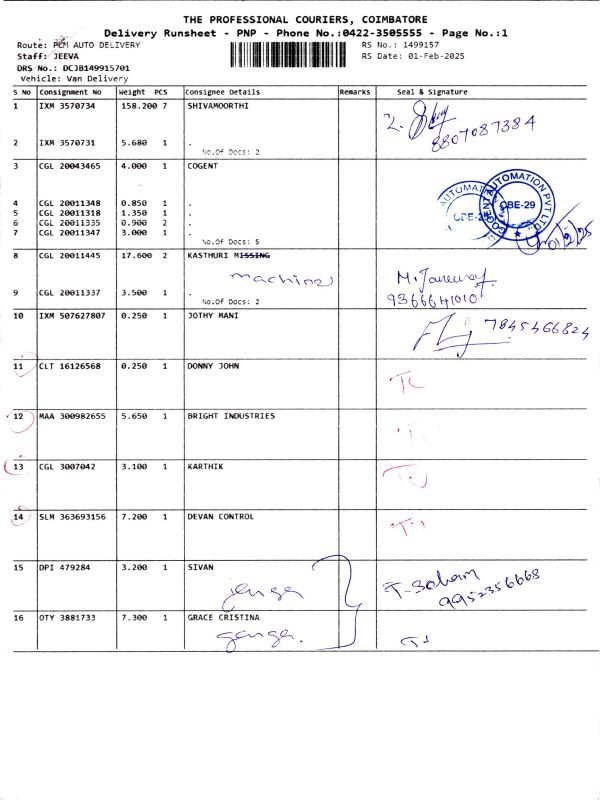 THE PROFESSIONAL COURIERS, COIMBATORE
Delivery Runsheet - PNP - Phone No.:0422-3505555 - Page No.:1
Route: PCM AUTO DELIVERY RS No.: 1499157
Staff: JEEVA RS Date: 01-Feb-2025
DRS No.: DCJB149915701
Vehicle: Van Delivery
S No Consignment No Weight PCS Consignee Details Remarks Seal & Signature
1 IXM 3570734 158.200 7 SHIVAMOORTHI
8807087384
2 IXM 3570731 5.680 1 .
No.Of Docs: 2
3 CGL 20043465 4.000 1 COGENT
COGENT AUTOMATION PVT LTD
CBE-29
4 CGL 20011348 0.850 1 .
5 CGL 20011318 1.350 1 .
6 CGL 20011335 0.900 2 .
7 CGL 20011347 3.000 1 .
No.Of Docs: 5
8 CGL 20011445 17.600 2 KASTHURI MISSING
machine
9366641010
9 CGL 20011337 3.500 1 .
No.Of Docs: 2
10 IXM 507627807 0.250 1 JOTHY MANI
7845466824
11 CLT 16126568 0.250 1 DONNY JOHN
12 MAA 300982655 5.650 1 BRIGHT INDUSTRIES
13 CGL 3007042 3.100 1 KARTHIK
14 SLM 363693156 7.200 1 DEVAN CONTROL
15 DPI 479284 3.200 1 SIVAN
9952356668
16 OTY 3881733 7.300 1 GRACE CRISTINA
ganga